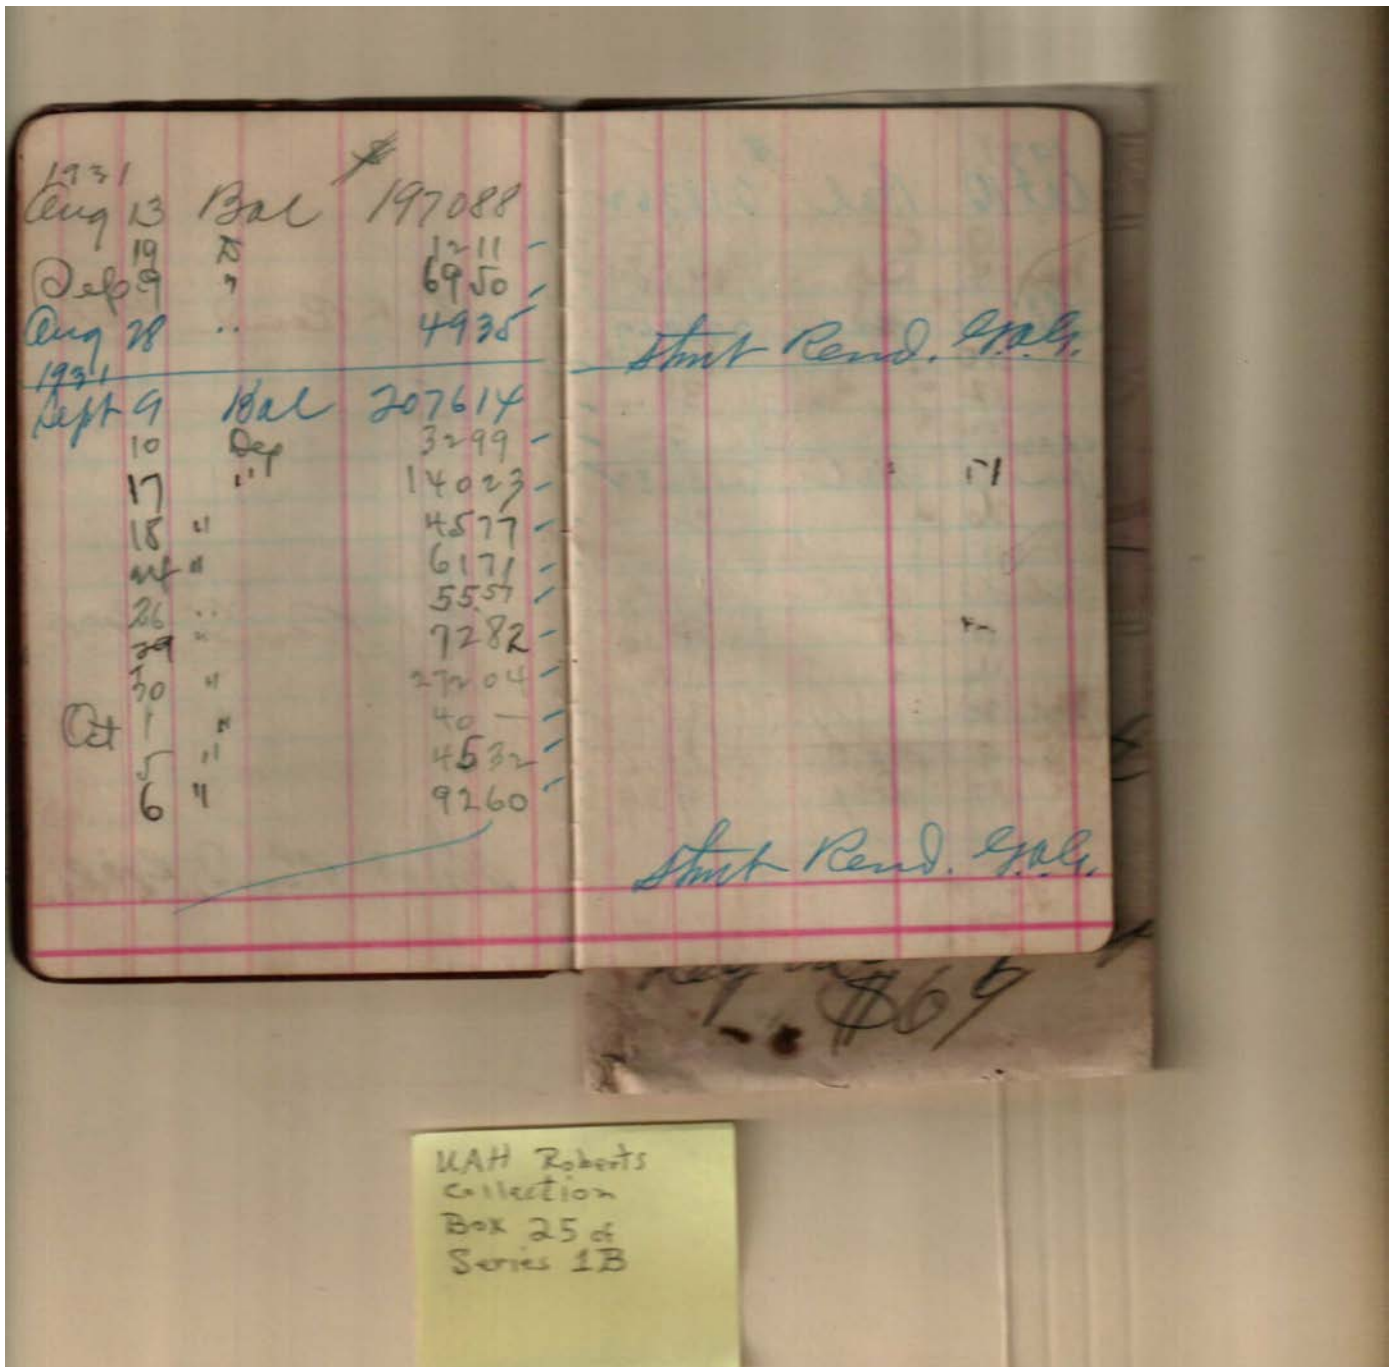 1931 $
Aug 13 Bal 197088
19 D 1211
Sep 9 " 6950
Aug 28 " 4935
Stmt Rend. G.a.G.
1931
Sept 9 Bal 207614
10 Dep 3299
17 " 14023
18 " 4577
24 " 6171
26 " 5557
29 " 7282
30 " 27204
Oct 1 " 40 —
5 " 4532
6 " 9260
Stmt Rend. G.a.G.
$69
UAH Roberts
Collection
Box 25 of
Series 1B